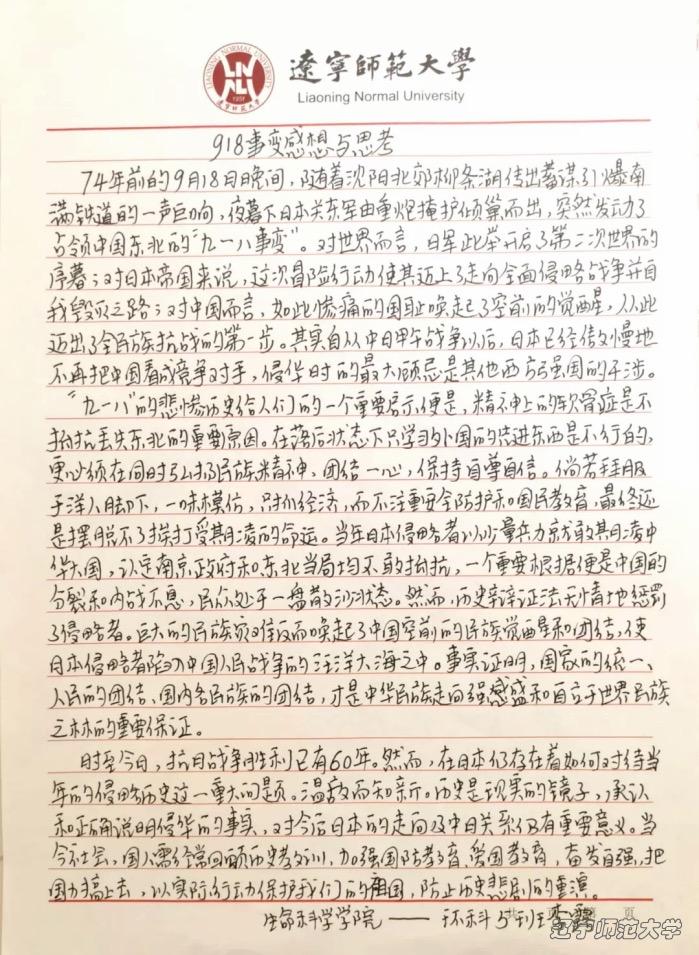 LIAONING NORMAL UNIVERSITY
LNNU
1951
辽宁师范大学
遼寧師範大學
Liaoning Normal University
918事变感想与思考
74年前的9月18日晚间,随着沈阳北郊柳条湖传出蓄谋引爆南
满铁道的一声巨响,夜幕下日本关东军由重炮掩护倾巢而出,突然发动了
占领中国东北的“九一八事变”。对世界而言,日军此举开启了第二次世界的
序幕;对日本帝国来说,这次冒险行动使其迈上了走向全面侵略战争并自
我毁灭之路;对中国而言,如此惨痛的国耻唤起了空前的觉醒,从此
迈出了全民族抗战的第一步。其实自从中日甲午战争以后,日本已经傲慢地
不再把中国看成竞争对手,侵华时的最大顾忌是其他西方强国的干涉。
“九一八”的悲惨历史给人们的一个重要启示便是,精神上的软骨症是不
抵抗丢失东北的重要原因。在落后状态下只学习外国的先进东西是不行的,
更必须在同时弘扬民族精神、团结一心,保持自尊自信。倘若拜服
于洋人脚下,一味模仿,只抓经济,而不注重安全防护和国民教育,最终还
是摆脱不了挨打受欺凌的命运。当年日本侵略者以少量兵力就敢欺凌中
华大国,认定南京政府和东北当局均不敢抵抗,一个重要根据便是中国的
分裂和内战不息,民众处于一盘散沙状态。然而,历史辩证法无情地惩罚
了侵略者。巨大的民族灾难反而唤起了中国空前的民族觉醒和团结,使
日本侵略者陷入中国人民战争的汪洋大海之中。事实证明,国家的统一、
人民的团结、国内各民族的团结,才是中华民族走向强盛和自立于世界民族
之林的重要保证。
时至今日,抗日战争胜利已有60年。然而,在日本仍存在着如何对待当
年的侵略历史这一重大问题。温故而知新。历史是现实的镜子,承认
和正确说明侵华的事实,对今后日本的走向及中日关系仍有重要意义。当
今社会,国人需经常回顾历史教训,加强国防教育、爱国教育,奋发自强,把
国力搞上去,以实际行动保护我们的祖国,防止历史悲剧的重演。
生命科学学院——环科5班李
共 页 第 页
辽宁师范大学